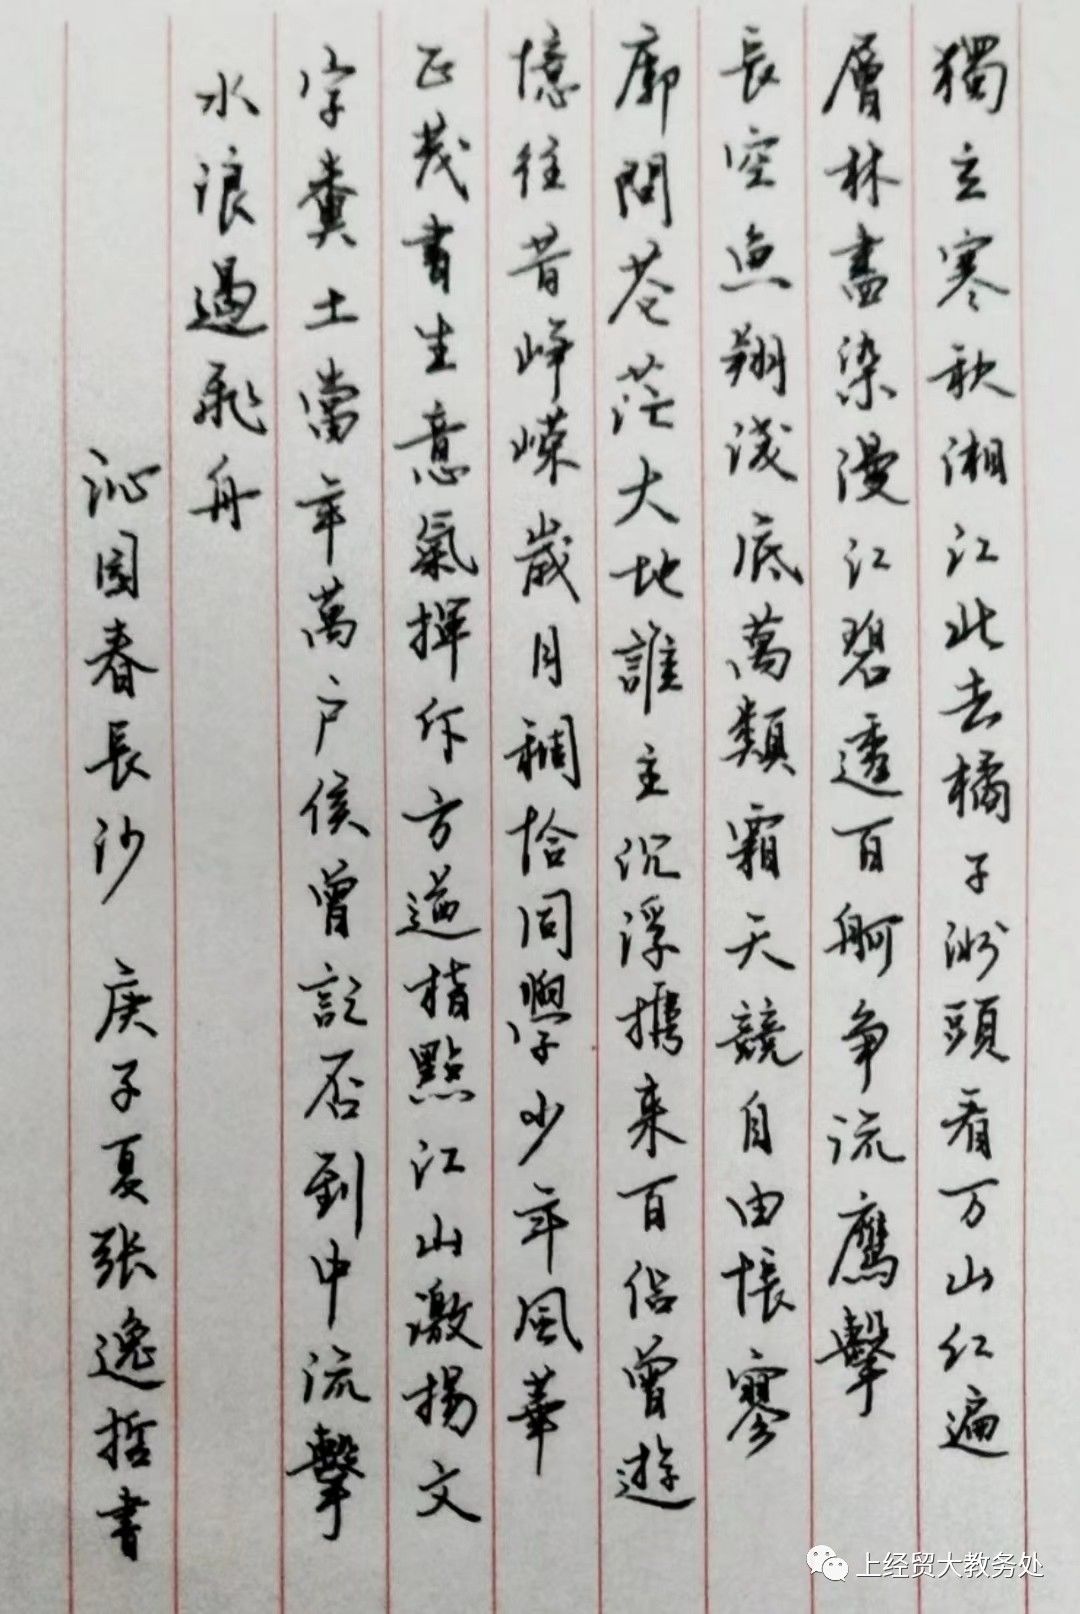 獨立寒秋湘江北去橘子洲頭看万山红遍
層林盡染漫江碧透百舸争流鷹擊
長空魚翔淺底萬類霜天競自由悵寥
廓問蒼茫大地誰主沉浮攜来百侣曾遊
憶往昔崢嶸歲月稠恰同學少年風華
正茂書生意氣揮斥方遒指點江山激揚文
字糞土當年萬户侯曾記否到中流擊
水浪遏飛舟
沁園春長沙 庚子夏張逸哲書
上经贸大教务处